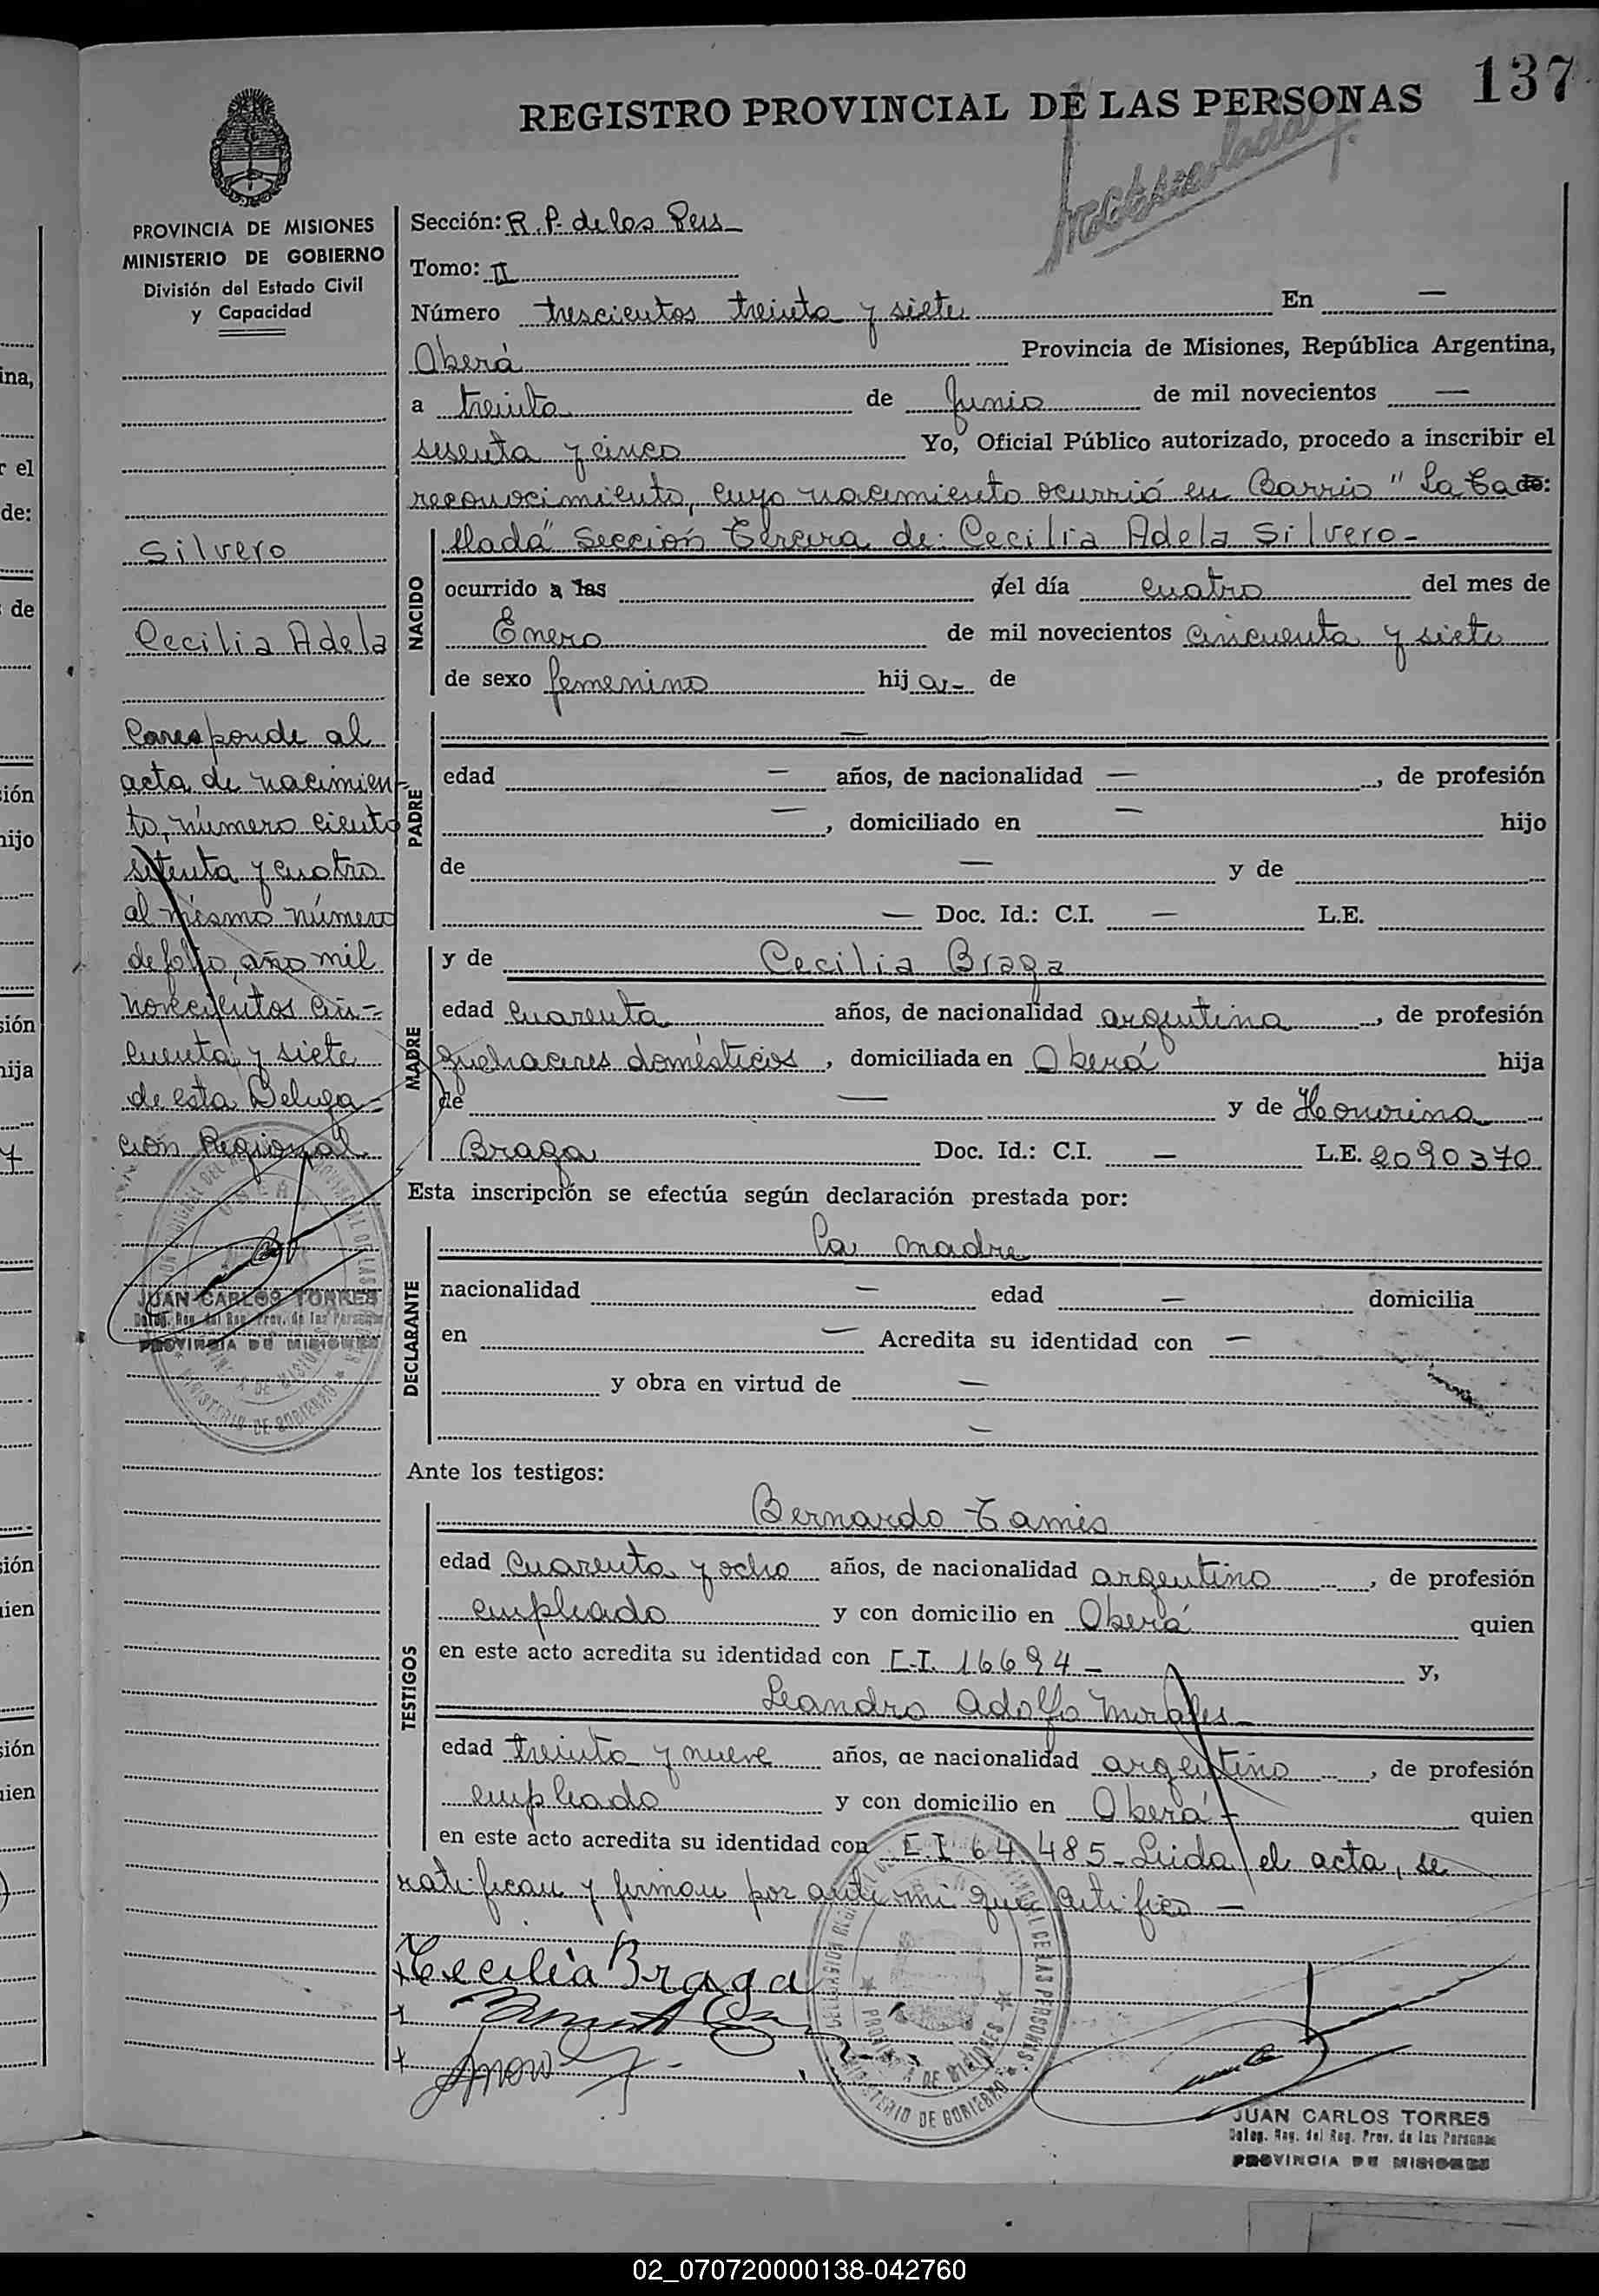 137
REGISTRO PROVINCIAL DE LAS PERSONAS
PROVINCIA DE MISIONES
MINISTERIO DE GOBIERNO
División del Estado Civil
y Capacidad
Silvero
Cecilia Adela
Corresponde al
acta de nacimien-
to, número ciento
setenta y cuatro
al mismo número
de folio, año mil
novecientos cin=
cuenta y siete
de esta Delega=
ción Regional
JUAN CARLOS TORRES
Deleg. Reg. del Reg. Prov. de las Personas
PROVINCIA DE MISIONES
Sección: R. P. de las Pers
Tomo: II
Número trescientos treinta y siete En —
Oberá Provincia de Misiones, República Argentina,
a treinta de Junio de mil novecientos —
sesenta y cinco Yo, Oficial Público autorizado, procedo a inscribir el
reconocimiento, cuyo nacimiento ocurrió en Barrio "La Ta de:
llada" Sección Tercera de: Cecilia Adela Silvero-
NACIDO
ocurrido a las del día cuatro del mes de
Enero de mil novecientos cincuenta y siete
de sexo femenino hij a- de
—
PADRE
edad — años, de nacionalidad — , de profesión
— , domiciliado en — hijo
de — y de
— Doc. Id.: C.I. — L.E.
MADRE
y de Cecilia Braga
edad cuarenta años, de nacionalidad argentina , de profesión
quehaceres domésticos , domiciliada en Oberá hija
de — y de Honorina
Braga Doc. Id.: C.I. — L.E. 2090370
Esta inscripción se efectúa según declaración prestada por:
DECLARANTE
la madre
nacionalidad — edad — domicilia
en — Acredita su identidad con —
y obra en virtud de —
—
Ante los testigos:
TESTIGOS
Bernardo Tamis
edad cuarenta y ocho años, de nacionalidad argentino , de profesión
empleado y con domicilio en Oberá quien
en este acto acredita su identidad con C.I. 16694 — y,
Leandro Adolfo Morales—
edad treinta y nueve años, de nacionalidad argentino , de profesión
empleado y con domicilio en Oberá - quien
en este acto acredita su identidad con C.I 64.485- Leida el acta, se
ratifican y firman por ante mi que certifico —
Cecilia Braga
JUAN CARLOS TORRES
Deleg. Reg. del Reg. Prov. de las Personas
PROVINCIA DE MISIONES
02_070720000138-042760